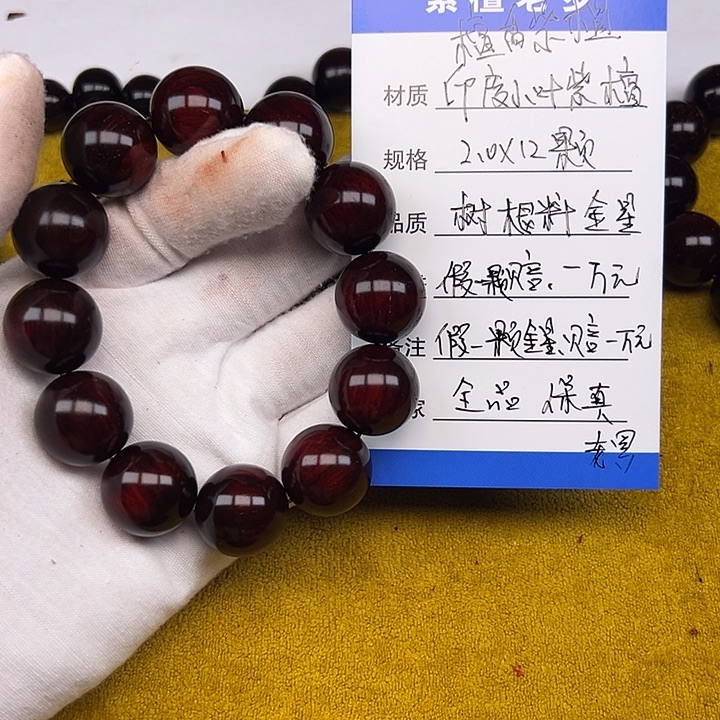 紫檀老罗
檀香紫檀
材质 印度小叶紫檀
规格 2.0X12颗
品质 树根料金星
假一颗赔一万元
备注 假一颗金星赔一万元
家 全品 保真
老罗